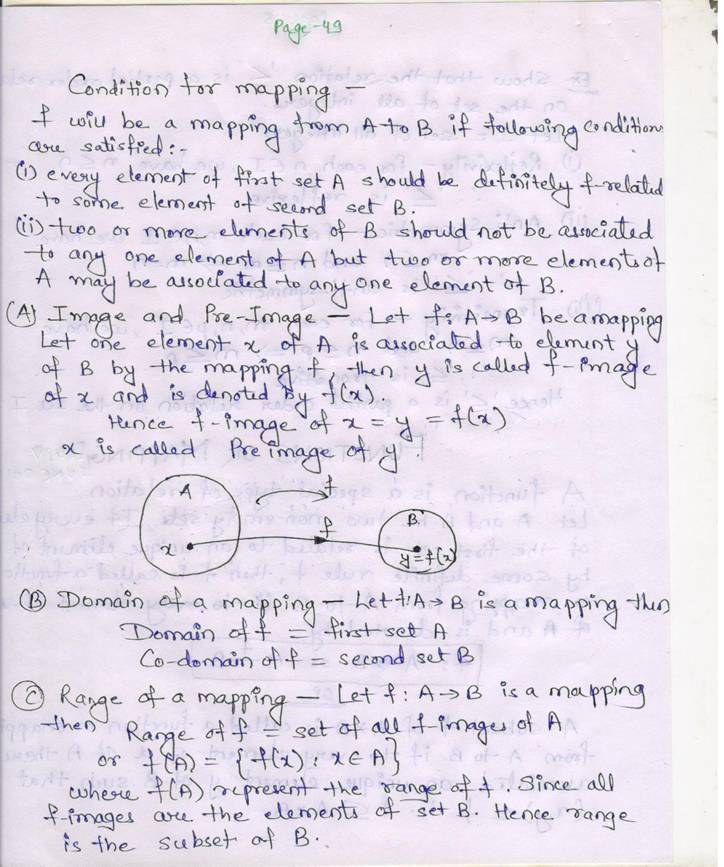 Page-49
Condition for mapping —
f will be a mapping from A to B if following conditions
are satisfied:-
(i) every element of first set A should be definitely f-related
to some element of second set B.
(ii) two or more elements of B should not be associated
to any one element of A but two or more elements of
A may be associated to any one element of B.
(A) Image and Pre-Image — Let f: A→B be a mapping
Let one element x of A is associated to element y
of B by the mapping f, then y is called f-image
of x and is denoted by f(x).
Hence f-image of x = y = f(x)
x is called Pre image of y.
f
A
f
B
x
y=f(x)
(B) Domain of a mapping — Let f: A→B is a mapping then
Domain of f = first set A
Co-domain of f = second set B
(C) Range of a mapping — Let f: A→B is a mapping
then Range of f = set of all f-images of A
or f(A) = {f(x): x∈A}
where f(A) represent the range of f. Since all
f-images are the elements of set B. Hence range
is the subset of B.